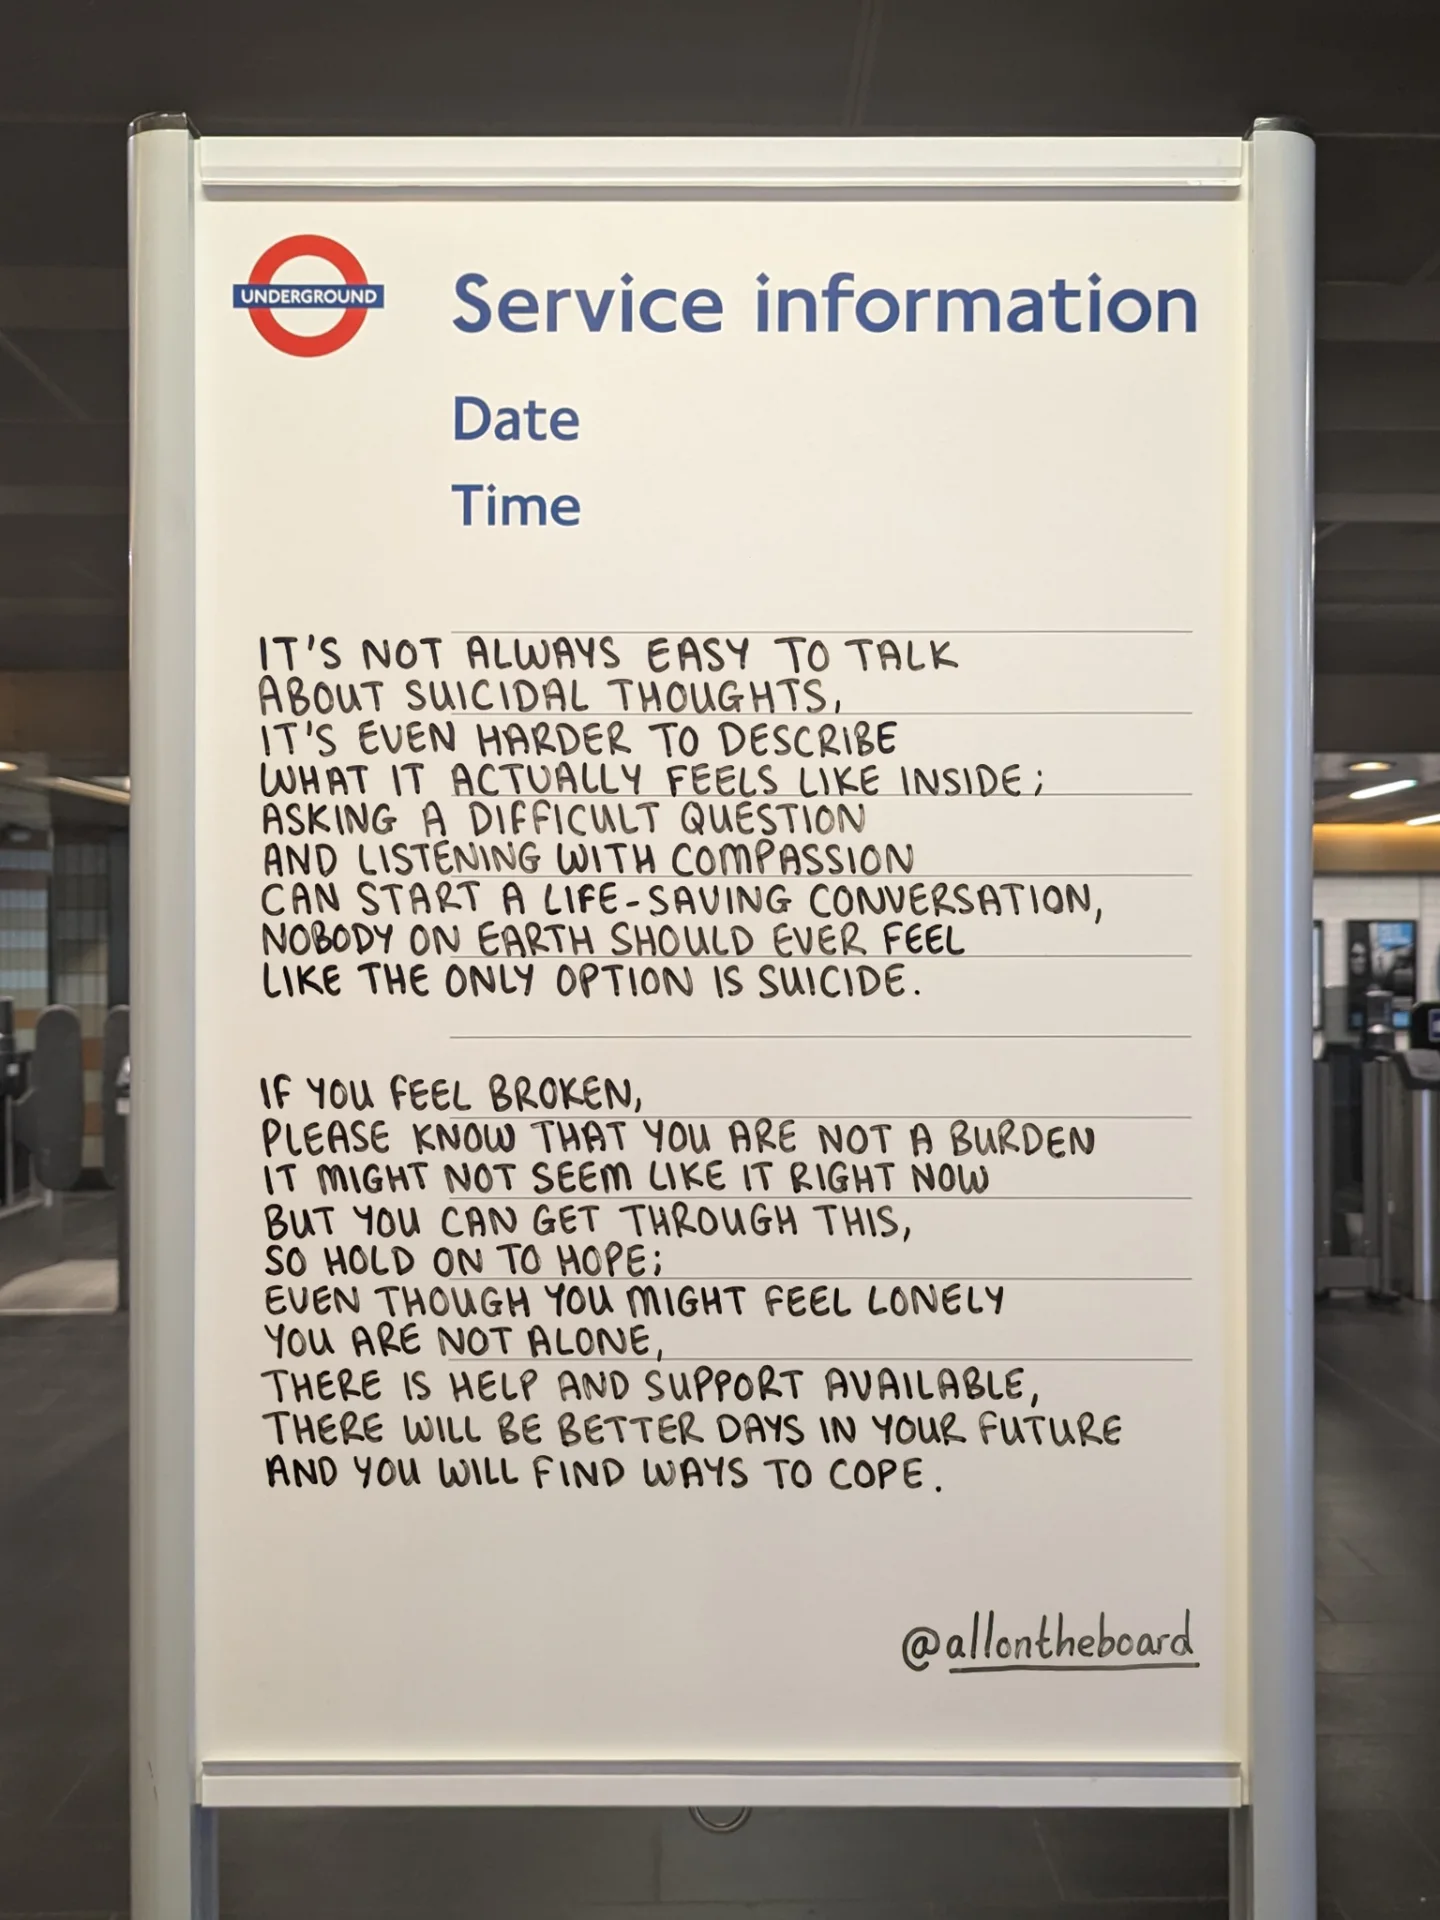 UNDERGROUND
Service information
Date
Time
IT'S NOT ALWAYS EASY TO TALK
ABOUT SUICIDAL THOUGHTS,
IT'S EVEN HARDER TO DESCRIBE
WHAT IT ACTUALLY FEELS LIKE INSIDE;
ASKING A DIFFICULT QUESTION
AND LISTENING WITH COMPASSION
CAN START A LIFE-SAVING CONVERSATION,
NOBODY ON EARTH SHOULD EVER FEEL
LIKE THE ONLY OPTION IS SUICIDE.
IF YOU FEEL BROKEN,
PLEASE KNOW THAT YOU ARE NOT A BURDEN
IT MIGHT NOT SEEM LIKE IT RIGHT NOW
BUT YOU CAN GET THROUGH THIS,
SO HOLD ON TO HOPE;
EVEN THOUGH YOU MIGHT FEEL LONELY
YOU ARE NOT ALONE,
THERE IS HELP AND SUPPORT AVAILABLE,
THERE WILL BE BETTER DAYS IN YOUR FUTURE
AND YOU WILL FIND WAYS TO COPE.
@allontheboard